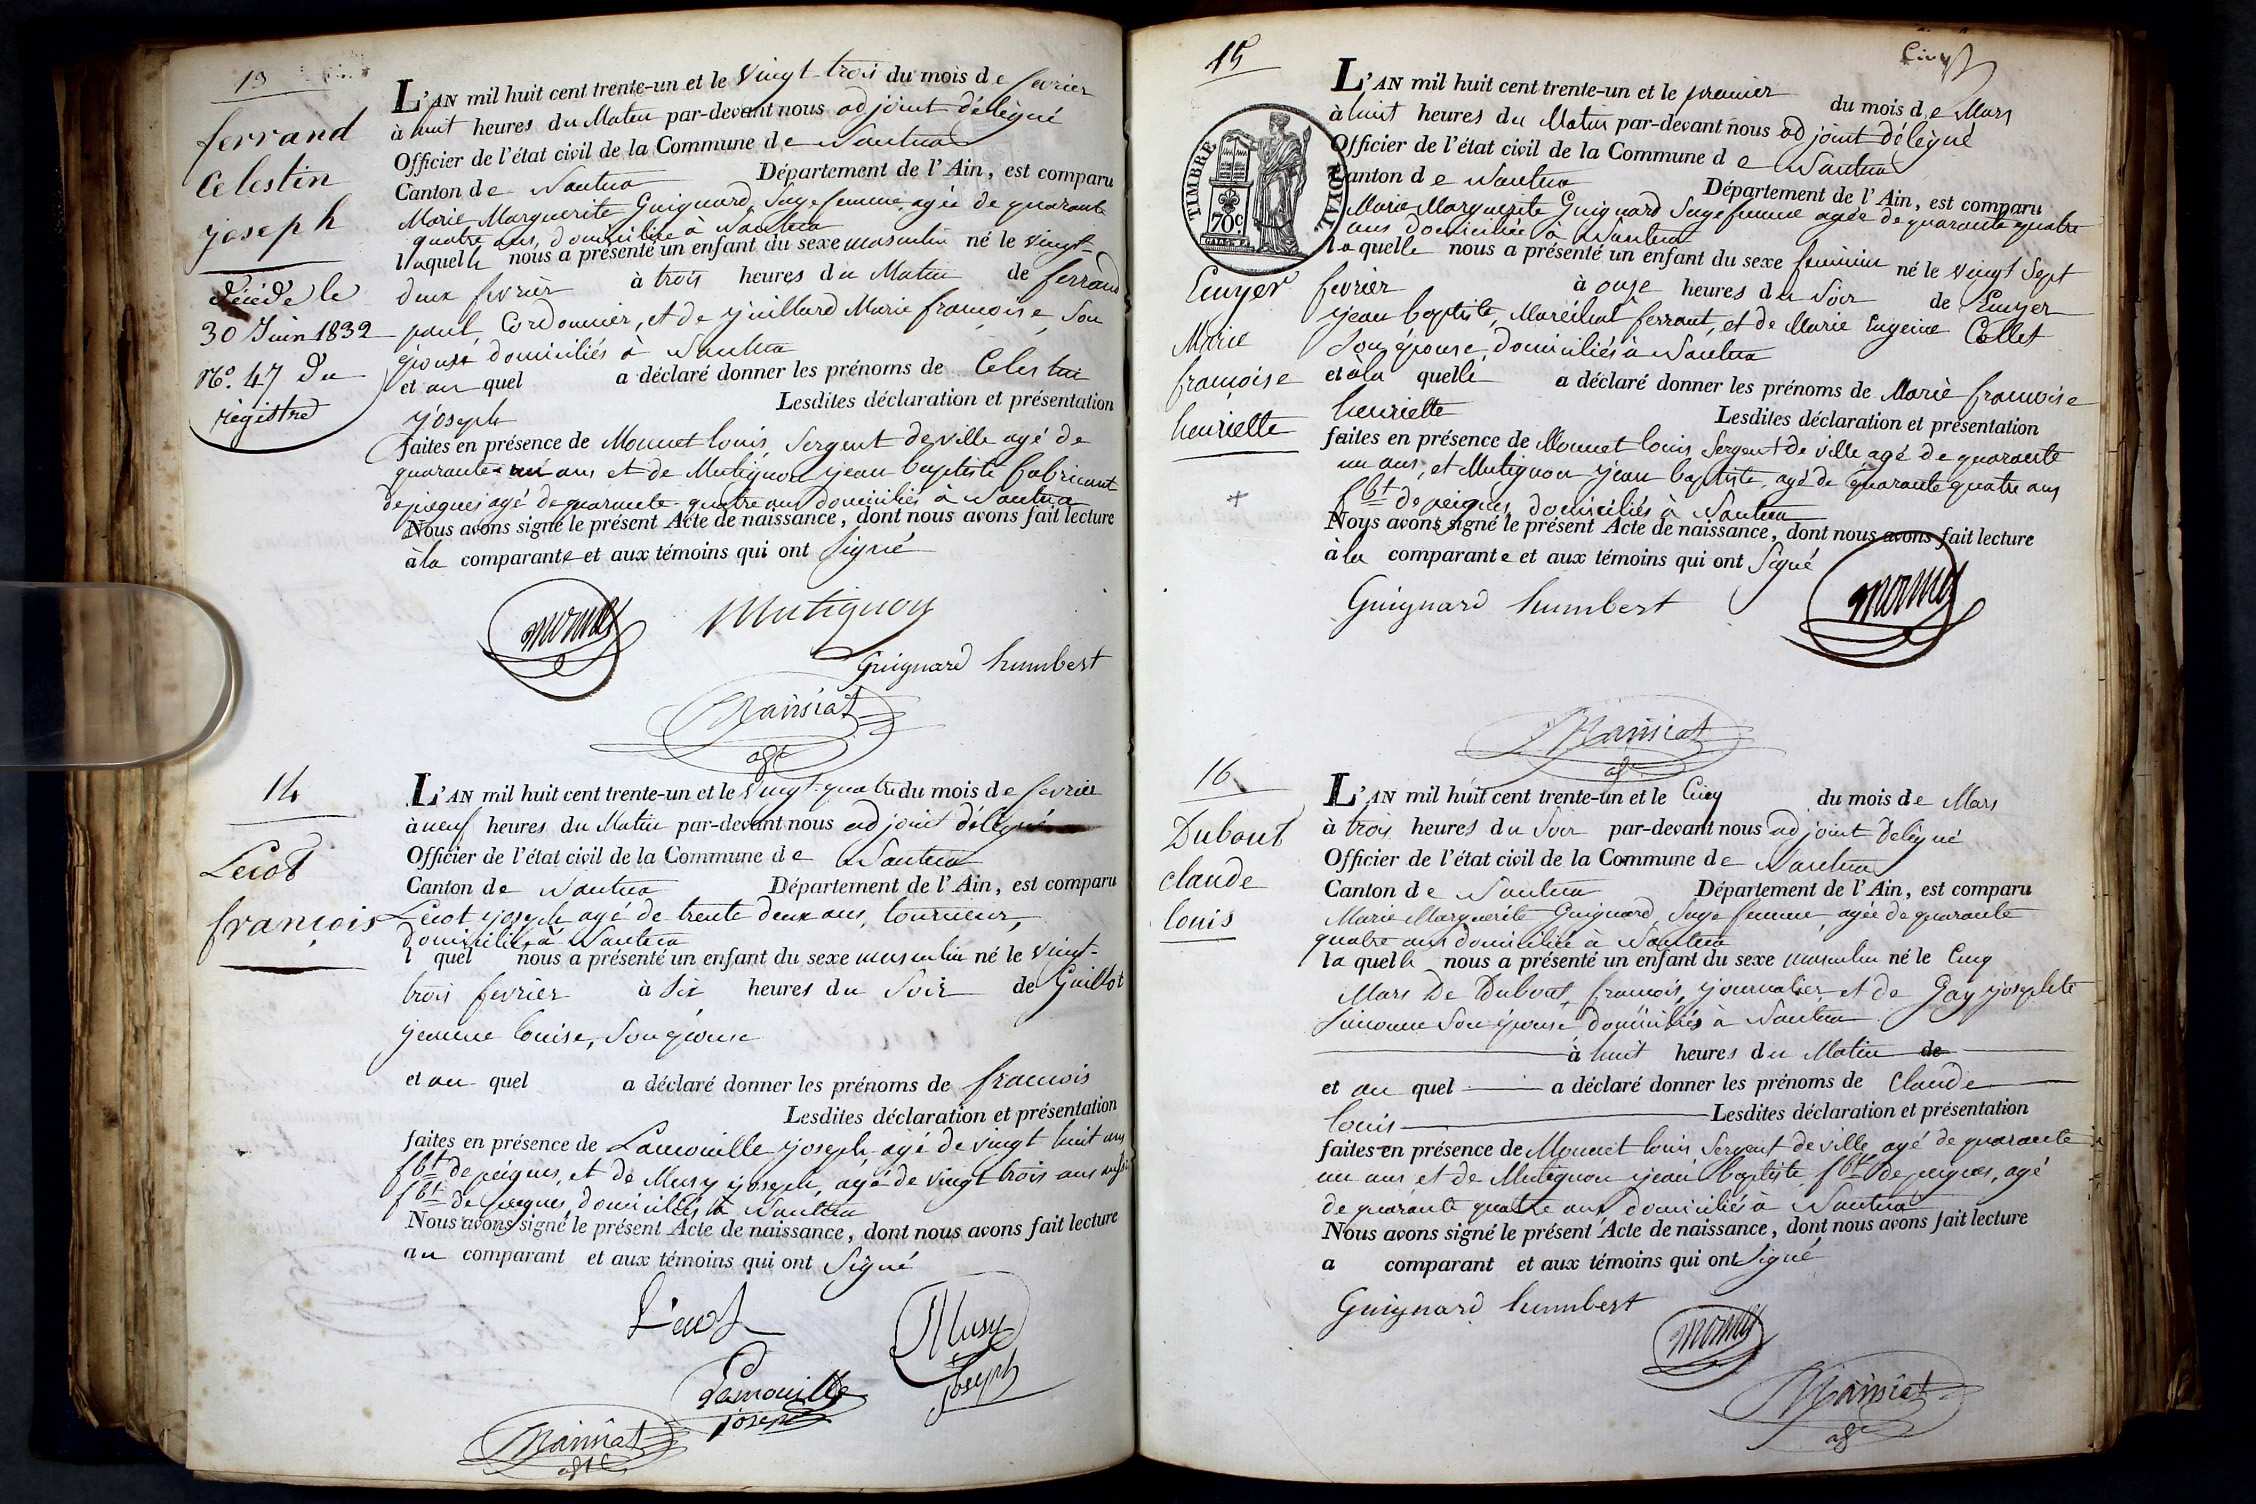 13
ferrand
Celestin
joseph
décédé le
30 Juin 1832
N.o 47 du
régistre
L'AN mil huit cent trente-un et le Vingt-trois du mois de fevrier
à huit heures du Matin par-devant nous adjoint délégué
Officier de l'état civil de la Commune de Nantua
Canton de Nantua Département de l'Ain, est comparu
Marie Marguerite Guignard, Sage femme agée de quarante
quatre ans, domiciliée à Nantua
laquelle nous a présenté un enfant du sexe masculin né le vingt-
deux fevrier à trois heures du Matin de ferrand
paul, Cordonnier, et de juillard Marie françoise, Son
épouse domiciliés à Nantua
et au quel a déclaré donner les prénoms de Celestin
joseph Lesdites déclaration et présentation
faites en présence de Monnet louis, Sergent de ville agé de
quarante-un ans et de Mutignon jean baptiste fabricant
de peignes agé de quarante-quatre ans domiciliés à Nantua
Nous avons signé le présent Acte de naissance, dont nous avons fait lecture
à la comparante et aux témoins qui ont Signé
monnet Mutignon
Guignard humbert
Mansiat
adt
14
Lecot
françois
L'AN mil huit cent trente-un et le Vingt-quatre du mois de fevrier
à neuf heures du Matin par-devant nous adjoint délégué
Officier de l'état civil de la Commune de Nantua
Canton de Nantua Département de l'Ain, est comparu
Lecot joseph agé de trente deux ans, tourneur,
domicilié à Nantua
lequel nous a présenté un enfant du sexe masculin né le vingt-
trois fevrier à Six heures du Soir de Guillot
jeanne louise, Son épouse
et au quel a déclaré donner les prénoms de francois
Lesdites déclaration et présentation
faites en présence de Lamouille joseph agé de vingt huit ans
fbt de peignes, et de Musy joseph, agé de vingt trois ans aussi
fbt de peignes, domiciliés à Nantua
Nous avons signé le présent Acte de naissance, dont nous avons fait lecture
au comparant et aux témoins qui ont Signé
Lécot
Musy
joseph
Lamouille
joseph
Mansiat
adt
15
TIMBRE ROYAL
70c
Cuyer
Marie
françoise
henriette
L'AN mil huit cent trente-un et le premier du mois de Mars
à huit heures du Matin par-devant nous adjoint délégué
Officier de l'état civil de la Commune de Nantua
Canton de Nantua Département de l'Ain, est comparu
Marie Marguerite Guignard Sage femme agée de quarante quatre
ans domiciliée à Nantua
laquelle nous a présenté un enfant du sexe feminin né le vingt Sept
fevrier à onze heures du Soir de Cuyer
jean baptiste, Maréchal ferrant, et de Marie Eugenie Collet
Son épouse, domiciliés à Nantua
et à la quelle a déclaré donner les prénoms de Marie francoise
henriette Lesdites déclaration et présentation
faites en présence de Monnet louis Sergent de ville agé de quarante
un ans, et Mutignon jean baptiste, agé de quarante quatre ans
fbt de peignes, domiciliés à Nantua
Nous avons signé le présent Acte de naissance, dont nous avons fait lecture
à la comparante et aux témoins qui ont Signé
Guignard humbert monnet
Mansiat
adt
16
Dubout
claude
louis
L'AN mil huit cent trente-un et le Cinq du mois de Mars
à trois heures du Soir par-devant nous adjoint délégué
Officier de l'état civil de la Commune de Nantua
Canton de Nantua Département de l'Ain, est comparu
Marie Marguerite Guignard, Sage femme, agée de quarante
quatre ans domiciliée à Nantua
laquelle nous a présenté un enfant du sexe masculin né le Cinq
Mars De Dubout, francois, journalier et de Gay josephte
Simonne Son épouse domiciliés à Nantua
à huit heures du Matin de
et au quel a déclaré donner les prénoms de Claude
louis Lesdites déclaration et présentation
faites en présence de Monnet louis Sergent de ville agé de quarante
un ans et de Mutignon jean baptiste fbt de peignes, agé
de quarante quatre ans domiciliés à Nantua
Nous avons signé le présent Acte de naissance, dont nous avons fait lecture
a comparant et aux témoins qui ont Signé
Guignard humbert
monnet
Mansiat
adt